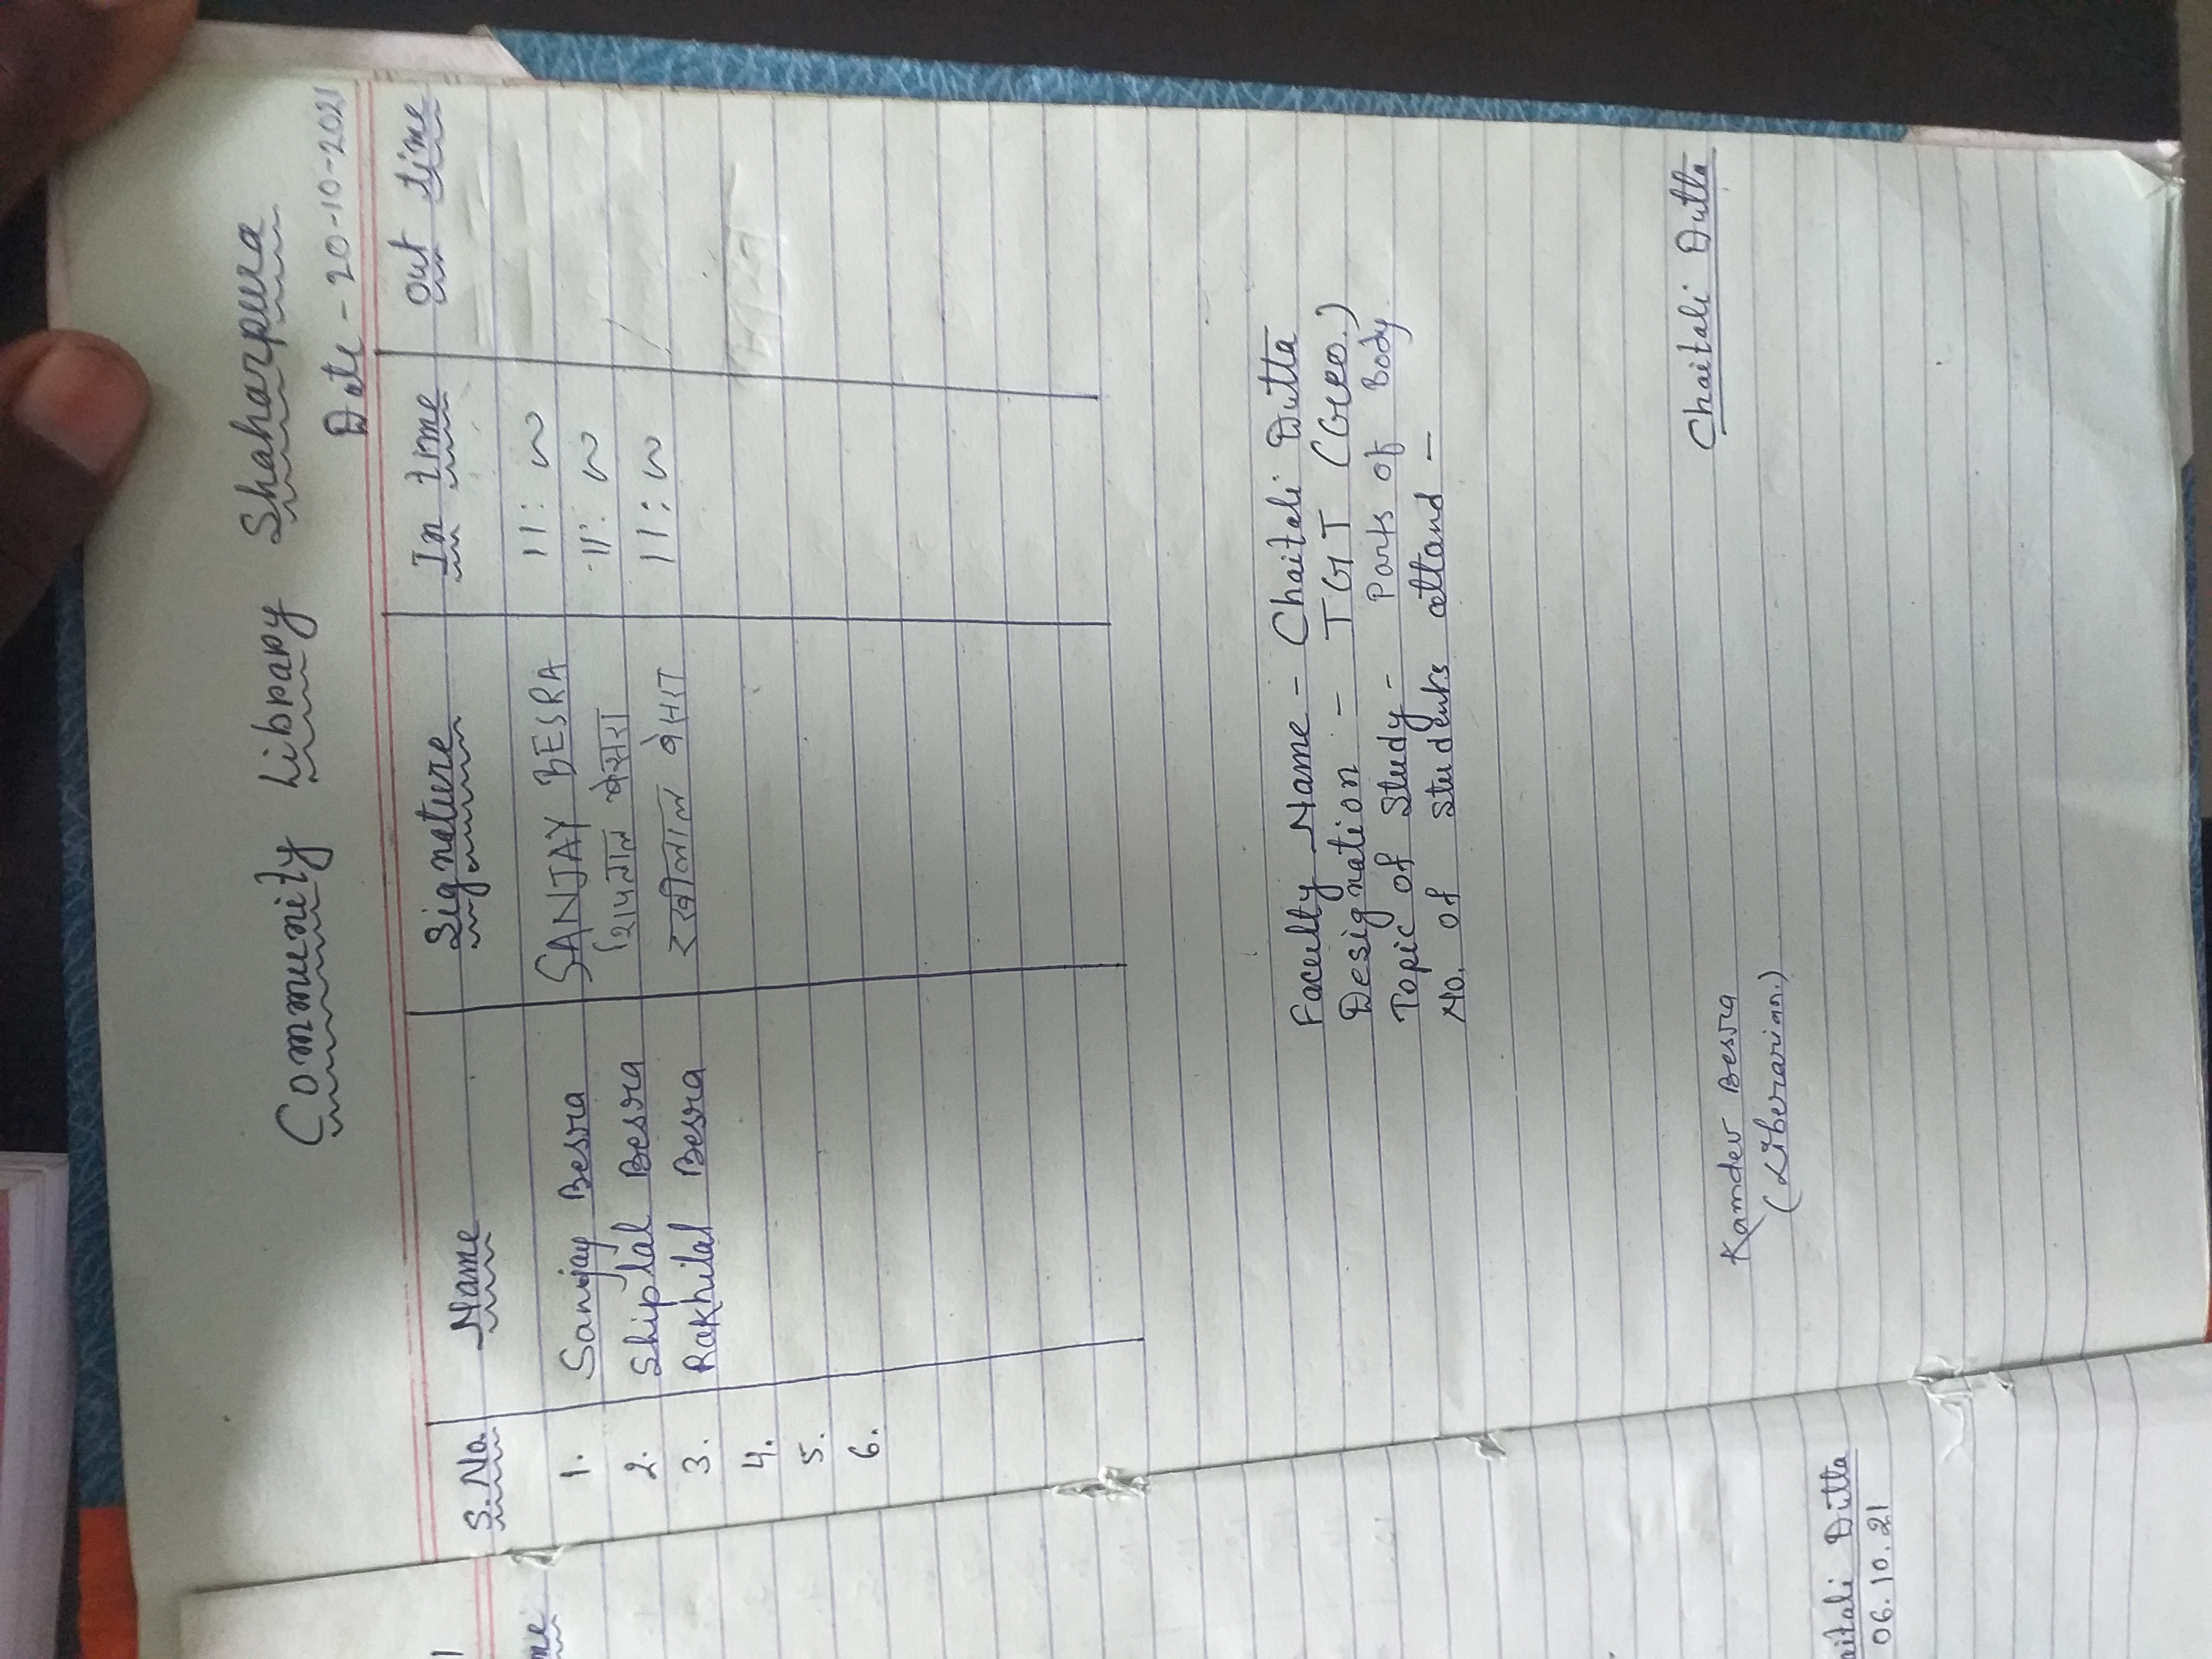 Community Library Shaharpura
Date - 20-10-2021
S.No. Name Signature In time Out time
1. Sanjay Besra SANJAY BESRA 11:00
2. Shiplal Besra शिपलाल बेसरा 11:00
3. Rakhilal Besra रखीलाल बेसरा 11:00
4.
5.
6.
Faculty Name - Chaitali Dutta
Designation - TGT (Geo.)
Topic of Study - Parts of Body
No. of students attand -
Kamdev Besra Chaitali Dutta
(Liberarian.)
aitali Dutta
06.10.21